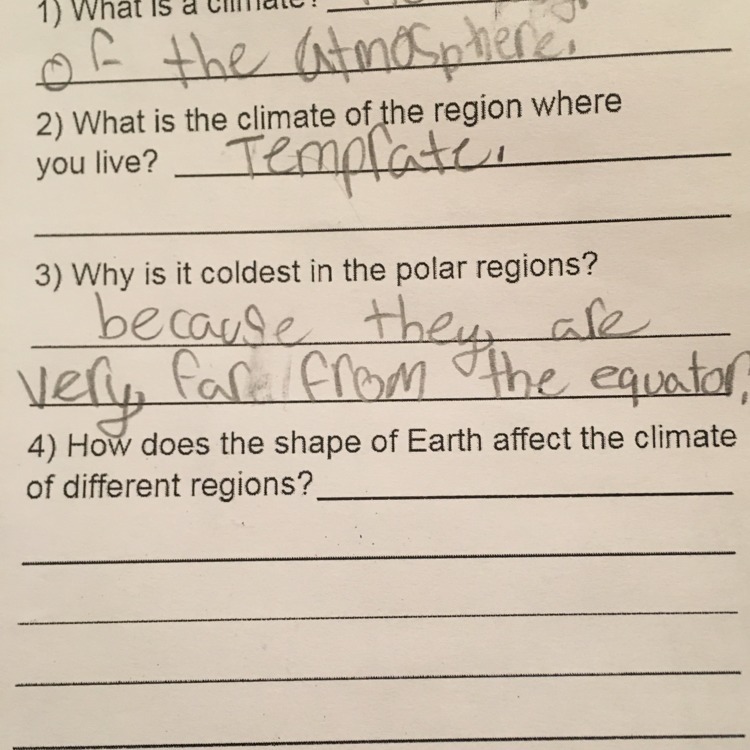 1) What is a climate?
of the atmosphere.
2) What is the climate of the region where
you live? Templrate.
3) Why is it coldest in the polar regions?
because they are
very far from the equator.
4) How does the shape of Earth affect the climate
of different regions?